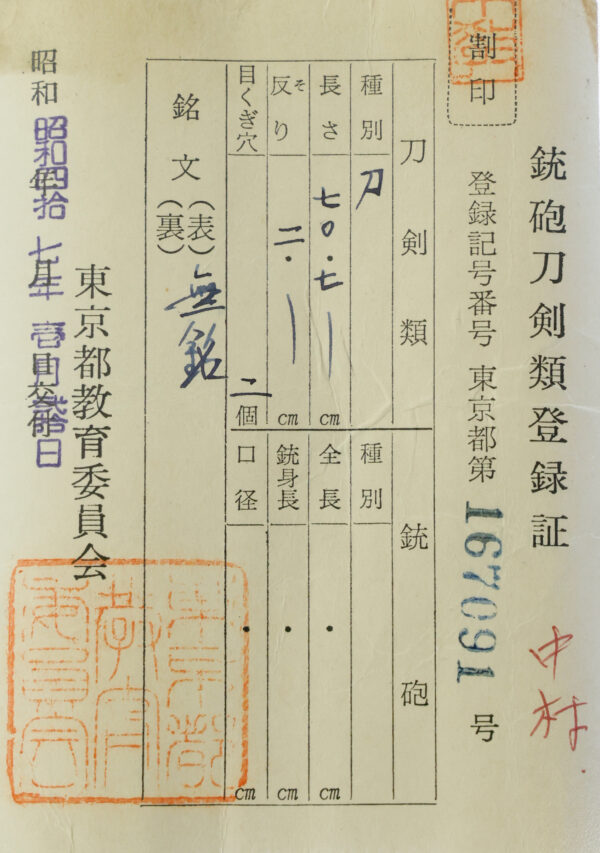 銃砲刀剣類登録証
中村
割印
登録記号番号 東京都第 167091 号
刀剣類
種別 刀
長さ 七〇・七｜cm
反り そ 二・｜cm
目くぎ穴 二個
銘文 (表) 無銘
(裏)
銃砲
種別
全長 ・ cm
銃身長 ・ cm
口径 ・ cm
東京都教育委員会
昭和 年 月 日交付
昭和四拾七年 壱月